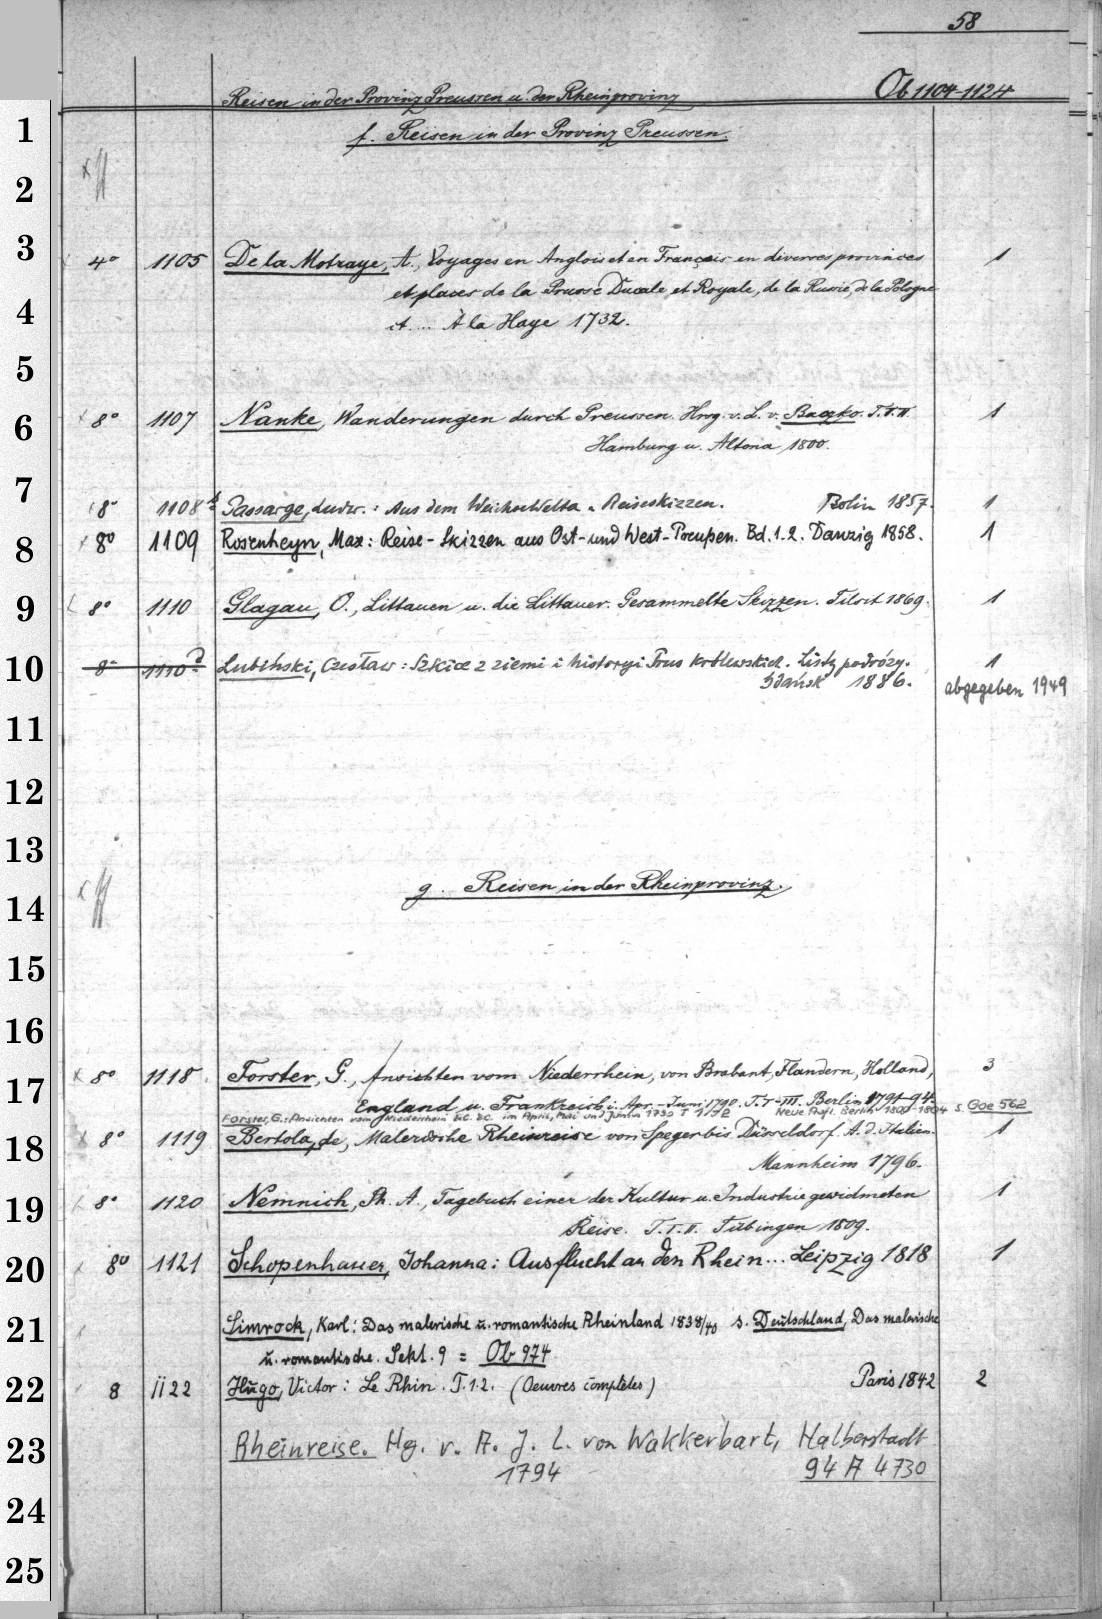 58
Reisen in der Provinz Preussen u. der Rheinprovinz Ob 1104-1124
1
f. Reisen in der Provinz Preussen.
2
3
4° 1105 De la Motraye, A., Voyages en Anglois et en François en diverses provinces 1
et places de la Prusse Ducale et Royale, de la Russie, de la Pologne
4
et .... A la Haye 1732.
5
6
8° 1107 Nanke, Wanderungen durch Preussen. Hrsg. v. L. v. Baczko. T. I. II 1
Hamburg u. Altona 1800.
7
8° 1108 b Passarge, Ludw.: Aus dem Weichseldelta. Reiseskizzen. Berlin 1857. 1
8
8° 1109 Rosenheyn, Max: Reise-Skizzen aus Ost- und West-Preußen. Bd. 1.2. Danzig 1858. 1
9
8° 1110 Glagau, O., Littauen u. die Littauer. Gesammelte Skizzen. Tilsit 1869. 1
10
8° 1110 Lubiński, Czesław: Szkice z ziemi i historyi Prus królewskich. Listy podróży. 1
Gdańsk 1886. abgegeben 1949
11
12
13
14
g. Reisen in der Rheinprovinz.
15
16
17
8° 1118. Forster, G., Ansichten vom Niederrhein, von Brabant, Flandern, Holland, 3
England u. Frankreich i. Apr.-Juni 1790. T. I-III. Berlin 1791-94.
Forster, G.: Ansichten vom Niederrhein &c. &c. im April, Mai und Junius 1790 T 1/2 Neue Aufl. Berlin 1800-1804 s. Goe 562
18
8° 1119 Bertola, de, Malerische Rheinreise von Speyer bis Düsseldorf. A. d. Italien. 1
Mannheim 1796.
19
8° 1120 Nemnich, Ph. A., Tagebuch einer der Kultur u. Industrie gewidmeten 1
Reise. T. I. II. Tübingen 1809.
20
8° 1121 Schopenhauer, Johanna: Ausflucht an den Rhein... Leipzig 1818 1
21
Simrock, Karl: Das malerische u. romantische Rheinland 1838/40 s. Deutschland, Das malerische
u. romantische. Sekt. 9 = Ob 974
22
8 1122 Hugo, Victor: Le Rhin. T. 1.2. (Oeuvres complètes) Paris 1842 2
23
Rheinreise. Hg. v. A. J. L. von Wakkerbart, Halberstadt
1794 94 A 4730
24
25